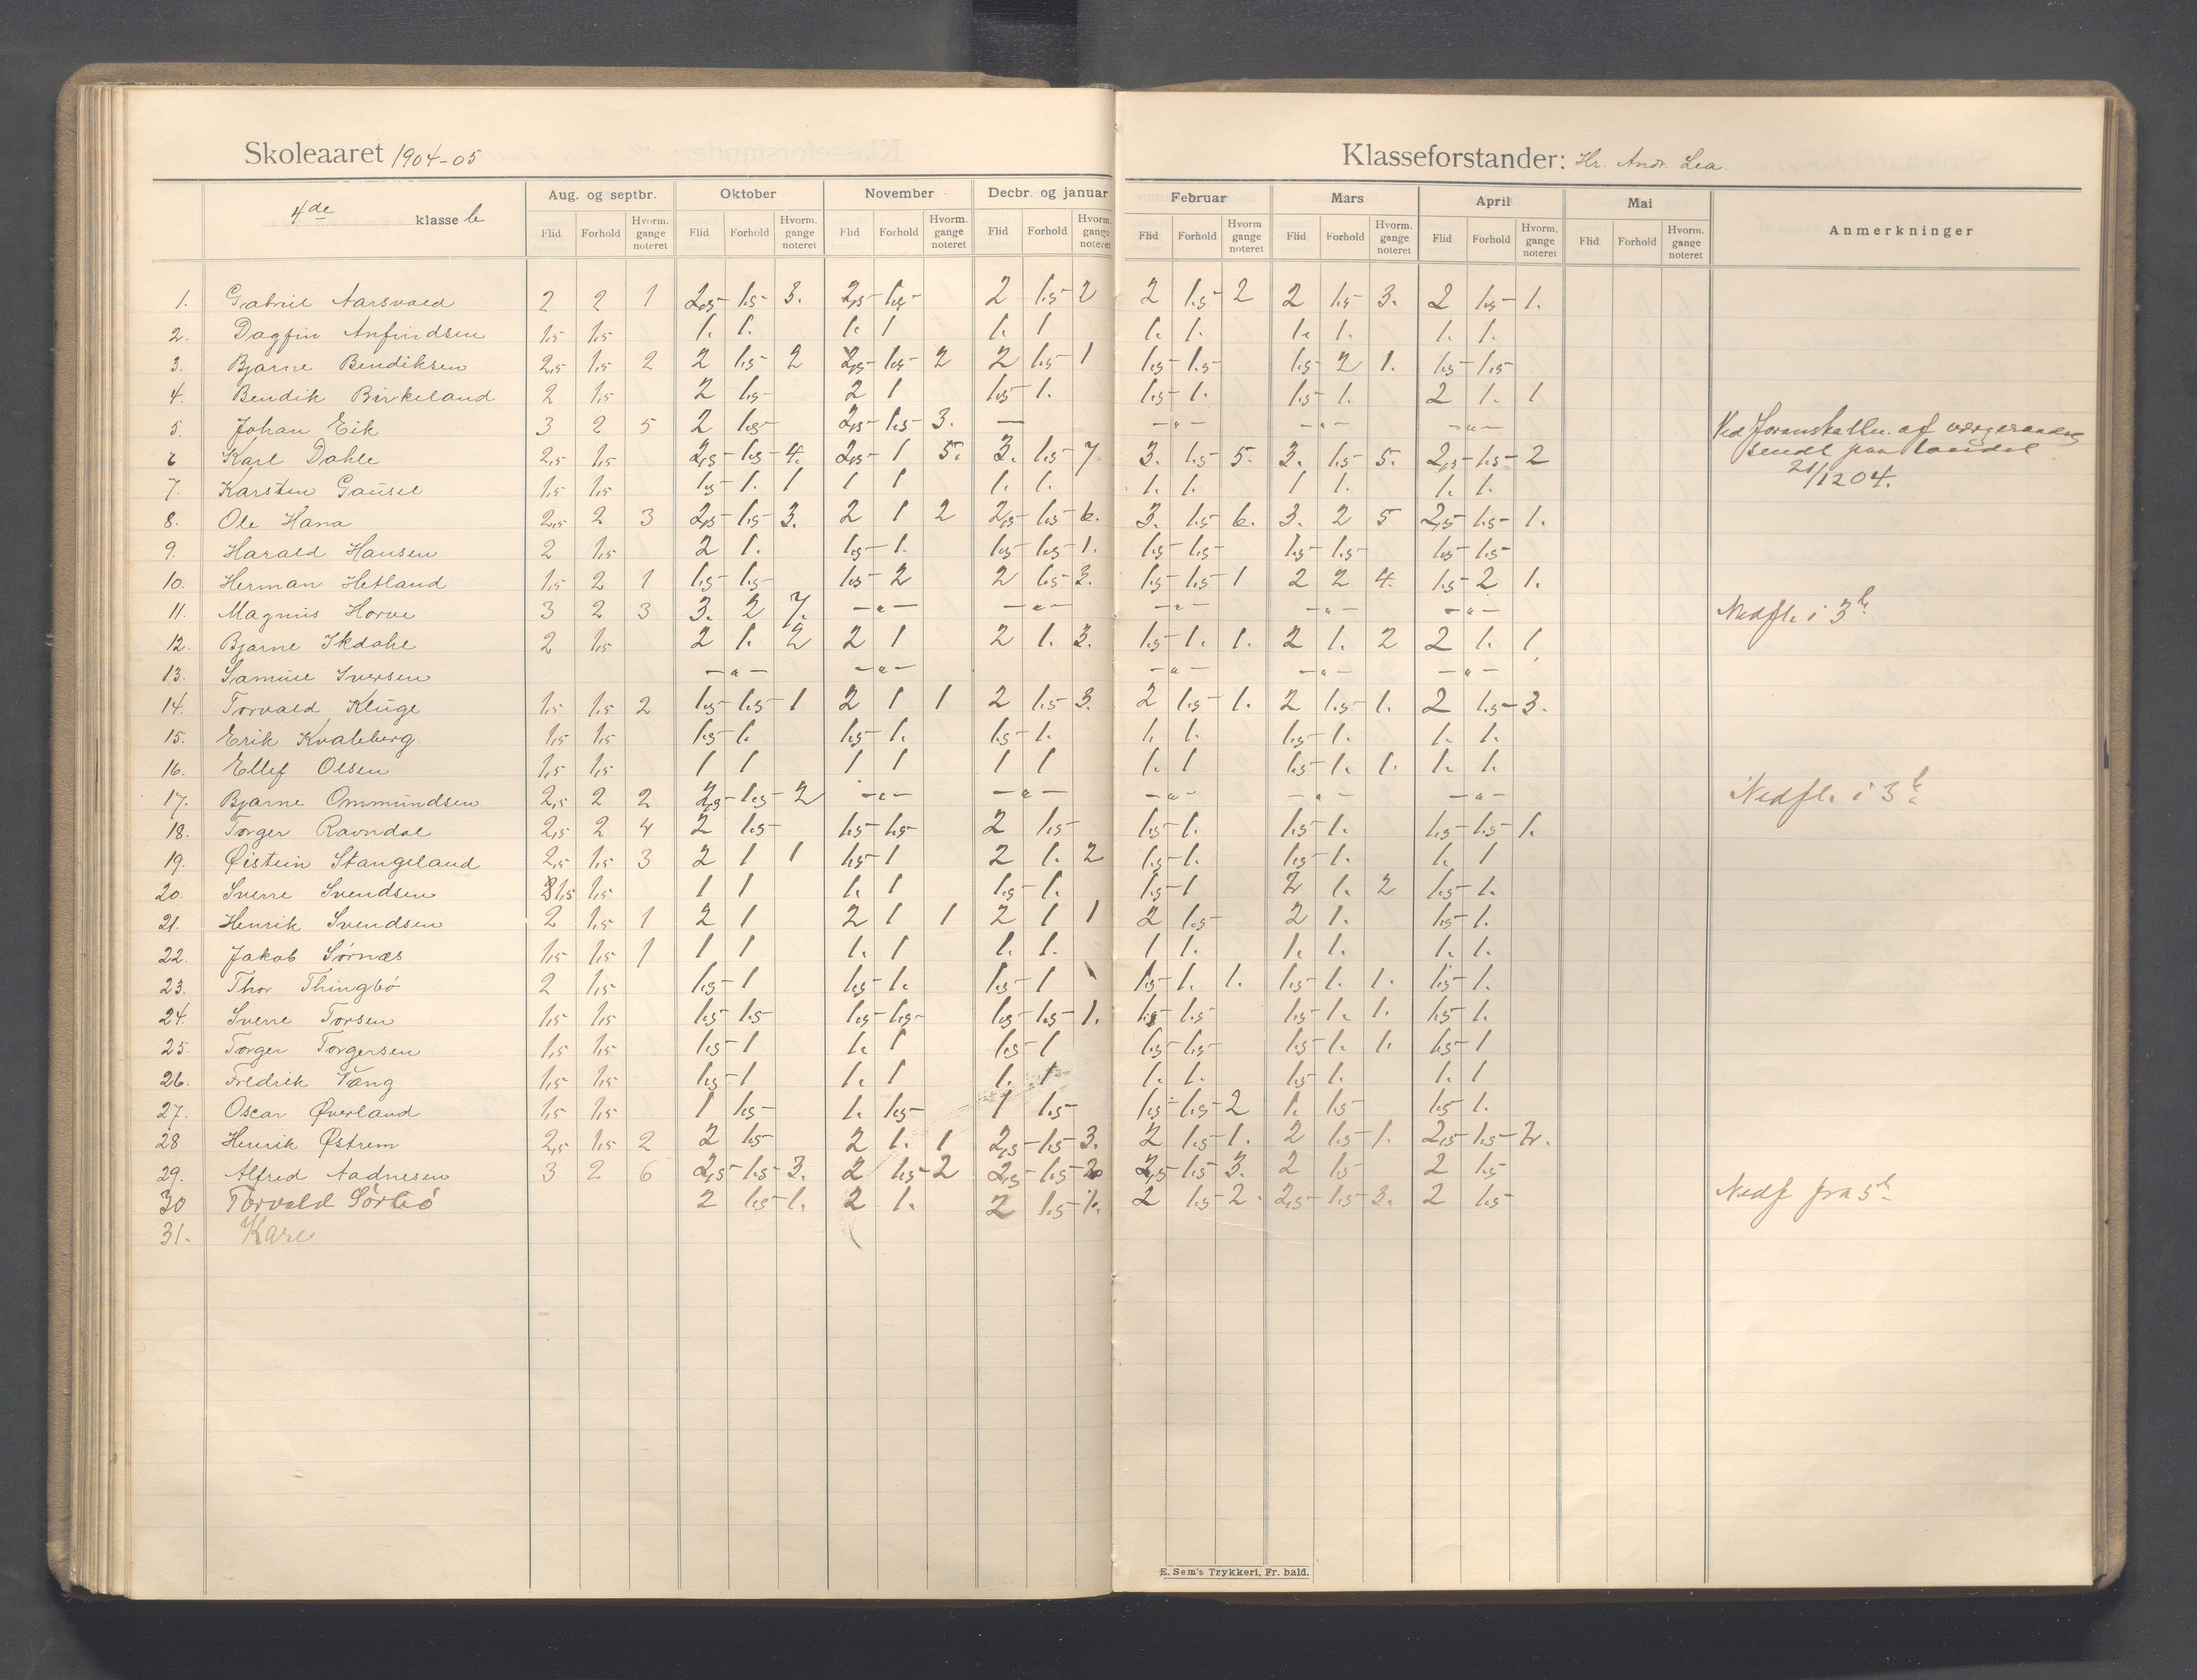 Skoleaaret 1904-05
Klasseforstander: Hr. Andr. Lea.
4de klasse b
Aug. og septbr. Oktober November Decbr. og januar Februar Mars April Mai Anmerkninger
Flid Forhold Hvorm. gange noteret Flid Forhold Hvorm. gange noteret Flid Forhold Hvorm. gange noteret Flid Forhold Hvorm. gange noteret Flid Forhold Hvorm gange noteret Flid Forhold Hvorm. gange noteret Flid Forhold Hvorm. gange noteret Flid Forhold Hvorm. gange noteret
1. Gabriel Aarsvold 2 2 1 2,5- 1,5- 3. 2,5- 1,5- 2 1,5- 2 2 1,5- 2 2 1,5- 3. 2 1,5- 1.
2. Dagfin Anfindsen 1,5 1,5 1. 1. 1. 1 1. 1 1. 1. 1. 1. 1. 1.
3. Bjarne Bendiksen 2,5 1,5 2 2 1,5- 2 2,5- 1,5- 2 2 1,5- 1 1,5- 1,5- 1,5- 2 1. 1,5- 1,5-
4. Bendik Birkeland 2 1,5 2 1,5- 2 1 1,5- 1. 1,5- 1. 1,5- 1. 2 1. 1
5. Johan Eik 3 2 5 2 1,5- 2,5- 1,5- 3. — -"- -"- -"- Ved foranstaltn. af
sendt paa landet
21/12 04.
6 Karl Dahle 2,5 1,5 2,5- 1,5- 4. 2,5- 1 5. 3. 1,5- 7 3. 1,5- 5. 3. 1,5- 5. 2,5- 1,5- 2
7. Karsten Gausel 1,5 1,5 1,5- 1. 1 1 1 1. 1. 1. 1. 1 1. 1. 1.
8. Ole Hana 2,5 2 3 2,5- 1,5- 3. 2 1 2 2,5- 1,5- 6. 3. 1,5- 6. 3. 2 5 2,5- 1,5- 1.
9. Harald Hansen 2 1,5 2 1. 1,5- 1. 1,5- 1,5- 1. 1,5- 1,5- 1,5- 1,5- 1,5- 1,5-
10. Herman Hetland 1,5 2 1 1,5- 1,5- 1,5- 2 2 1,5- 3. 1,5- 1,5- 1 2 2 4. 1,5- 2 1.
11. Magnus Horve 3 2 3 3. 2 7. -"- -"- -"- -"- -"- Nedfl. i 3 b.
12. Bjarne Ikdahl 2 1,5 2 1. 2 2 1 2 1. 3. 1,5- 1. 1. 2 1. 2 2 1. 1
13. Samuel Iversen -"- -"- -"- -"- -"-
14. Torvald Kluge 1,5 1,5 2 1,5- 1,5- 1 2 1 1 2 1,5- 3. 2 1,5- 1. 2 1,5- 1. 2 1,5- 3.
15. Erik Kvaleberg 1,5 1,5 1,5- 1. 1,5- 1. 1,5- 1. 1. 1. 1,5- 1. 1. 1.
16. Ellef Olsen 1,5 1,5 1 1 1 1 1 1 1. 1 1,5- 1. 1. 1. 1.
17. Bjarne Ommundsen 2,5 2 2 2,5- 1,5- 2 -"- -"- -"- -"- -"- Nedfl. i 3 b.
18. Torger Ravndal 2,5 2 4 2 1,5- 1,5- 1,5- 2 1,5- 1,5- 1. 1,5- 1. 1,5- 1,5- 1.
19. Øistein Stangeland 2,5 1,5 3 2 1 1 1,5- 1 2 1. 2 1,5- 1. 1,5- 1. 1. 1
20. Sverre Svendsen 1,5 1,5 1 1 1. 1 1,5- 1. 1,5- 1 2 1. 2 1,5- 1.
21. Henrik Svendsen 2 1,5 1 2 1 2 1 1 2 1 1 2 1,5- 2 1. 1,5- 1.
22. Jakob Sørnæs 1,5 1,5 1 1 1 1. 1 1. 1. 1 1. 1. 1. 1. 1.
23. Thor Thingbø 2 1,5 1,5- 1 1,5- 1. 1,5- 1 1,5- 1. 1. 1,5- 1. 1. 1,5- 1.
24. Sverre Torsen 1,5 1,5 1,5- 1,5- 1,5- 1,5- 1,5- 1,5- 1. 1,5- 1,5- 1,5- 1. 1. 1,5- 1.
25. Torger Torgersen 1,5 1,5 1,5- 1 1. 1 1,5- 1 1,5- 1,5- 1,5- 1. 1. 1,5- 1
26. Fredrik Vang 1,5 1,5 1,5- 1 1. 1 1. 1 1. 1. 1,5- 1. 1. 1
27. Oscar Øverland 1,5 1,5 1 1,5- 1. 1,5- 1 1,5- 1,5- 1,5- 2 1. 1,5- 1,5- 1.
28 Henrik Østrem 2,5 1,5 2 2 1,5- 2 1. 1 2,5- 1,5- 3. 2 1,5- 1. 2 1,5- 1. 2,5- 1,5- 2.
29. Alfred Aadnesen 3 2 6 2,5- 1,5- 3. 2 1,5- 2 2,5- 1,5- 2,5- 1,5- 3. 2 1,5- 2 1,5-
30 Torvald Sørbø 2 1,5- 1. 2 1. 2 1,5- 1. 2 1,5- 2. 2,5- 1,5- 3. 2 1,5- Nedf fra 5 b
31. Karl
E. Sem's Trykkeri, Fr. hald.